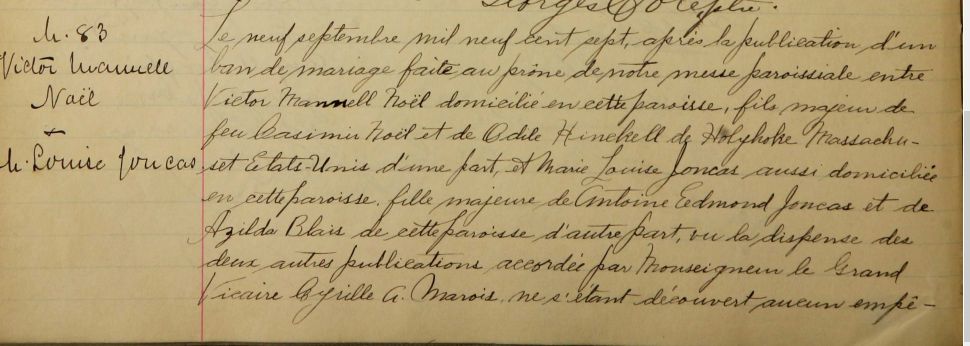 M. 83
Victor Mannell
Noël
+
M. Louise Joncas
Le neuf septembre mil neuf cent sept, après la publication d'un
ban de mariage faite au prône de notre messe paroissiale entre
Victor Mannell Noël domicilié en cette paroisse, fils majeur de
feu Casimir Noël et de Odile Hinckell de Holyhoke Massachu-
set Etats-Unis d'une part, et Marie Louise Joncas aussi domiciliée
en cette paroisse, fille majeure de Antoine Edmond Joncas et de
Azilda Blais de cette paroisse d'autre part, vu la dispense des
deux autres publications accordée par Monseigneur le Grand
Vicaire Cyrille A. Marois, ne s'étant découvert aucun empê-